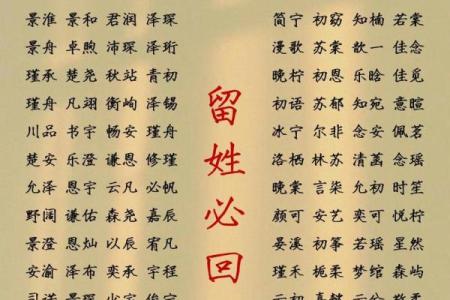 景淮 景和 君润 泽琛
景舟 卓煦 沛琛 泽珩
瑾承 楚尧 秋站 青初
瑾舟 凡翊 衡屿 泽锡
川品 书宇 畅安 瑾舟
楚安 乐澄 谦恩 修瑾
允泽 恩宇 云凡 必帆
野阔 谦佑 森尧 嘉辰
景澄 恩灿 以辰 宥凡
安渝 泽布 奕承 宇程
留姓必回
简宁 初窈 知楠 若棠
漫歌 苏棠 歆一 佳念
晚柠 初恩 乐晗 佳觅
初语 苏郁 知宛 意暄
冰宁 尔非 念安 佩茗
洛栖 林苏 清菡 念瑶
晚棠 言柒 允初 时笙
颜可 安艺 奕可 悦柠
晏溪 初筝 若瑶 星然
瑾禾 栀柔 梦绾 森屿